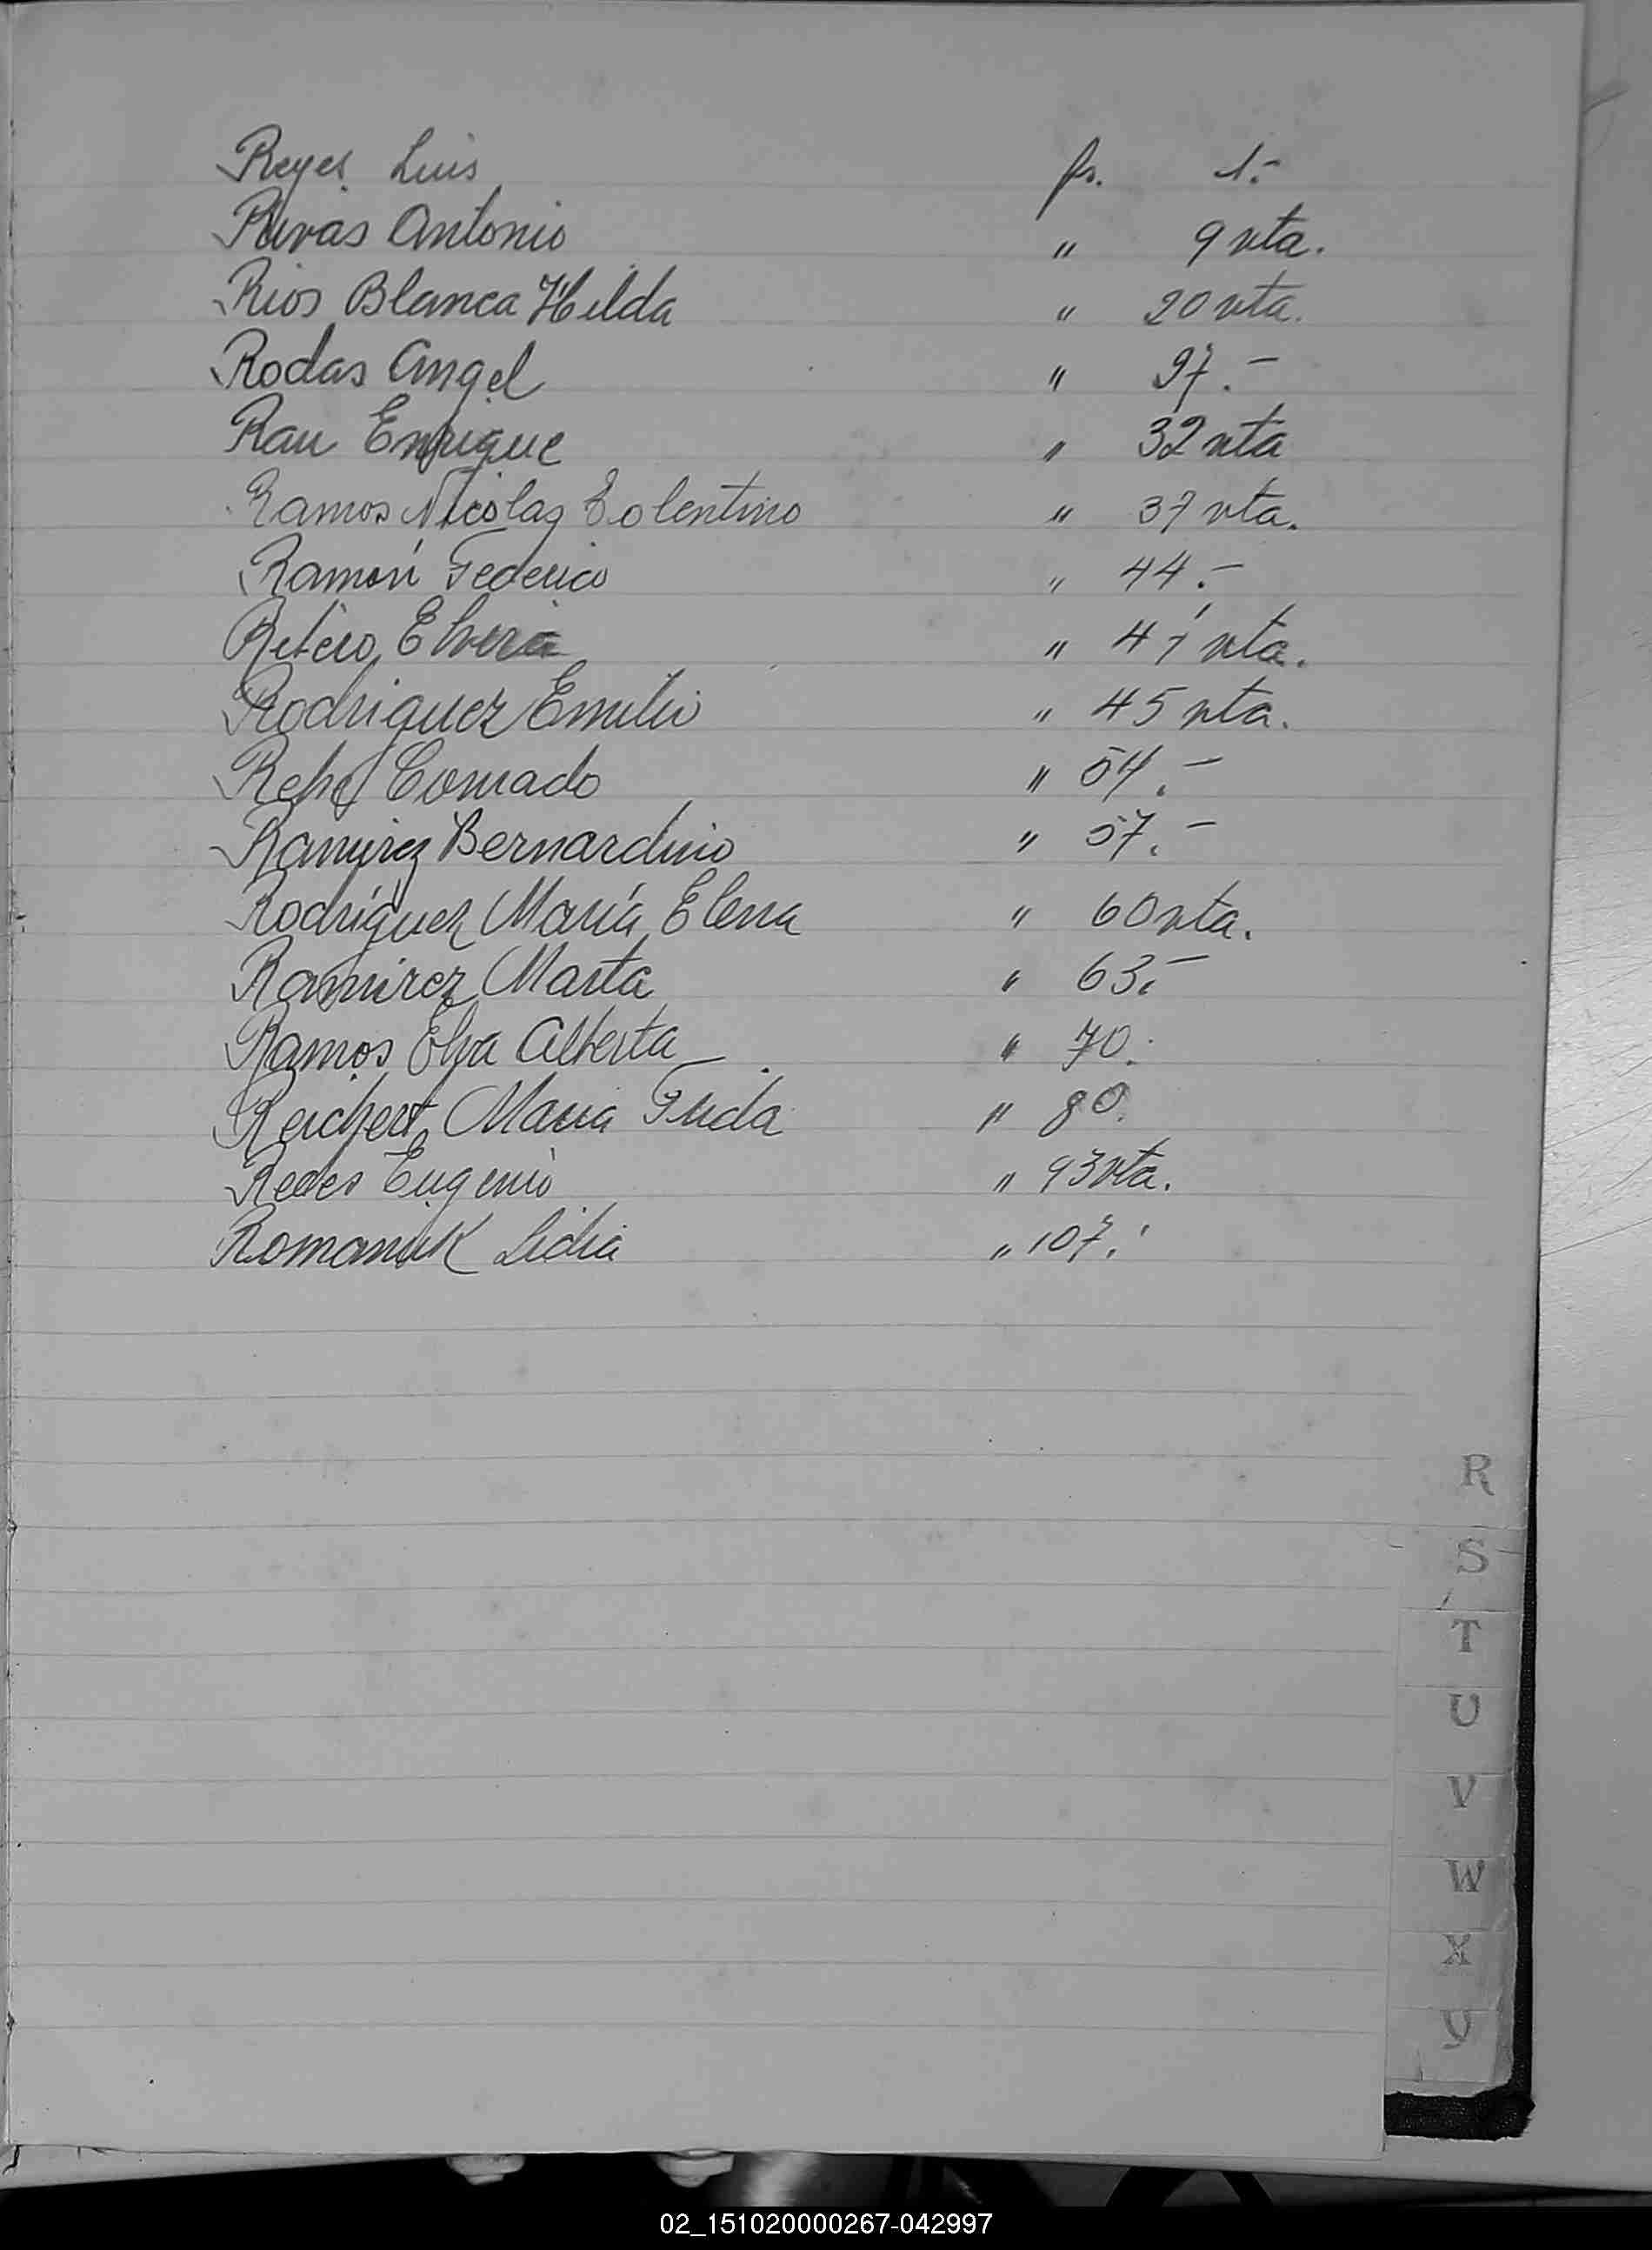 Reyes Luis fs. 1.-
Rivas Antonio " 9 vta.
Rios Blanca Hilda " 20 vta.
Rodas Angel " 27.-
Rau Enrique " 32 vta
Ramos Nicolas Tolentino " 37 vta.
Ramón Federico " 44.-
Elvira " 41 vta.
Rodriguez Emilio " 45 vta.
Conrado " 54.-
Ramirez Bernardino " 57.-
Rodríguez María Elena " 60 vta.
Ramirez Marta " 63.-
Ramos Elva Alberta " 70.
Reichert Maria Frida " 80.
Eugenio " 93 vta.
Romaniuk Lidia " 107.
R
S
T
U
V
W
X
Y
02_151020000267-042997